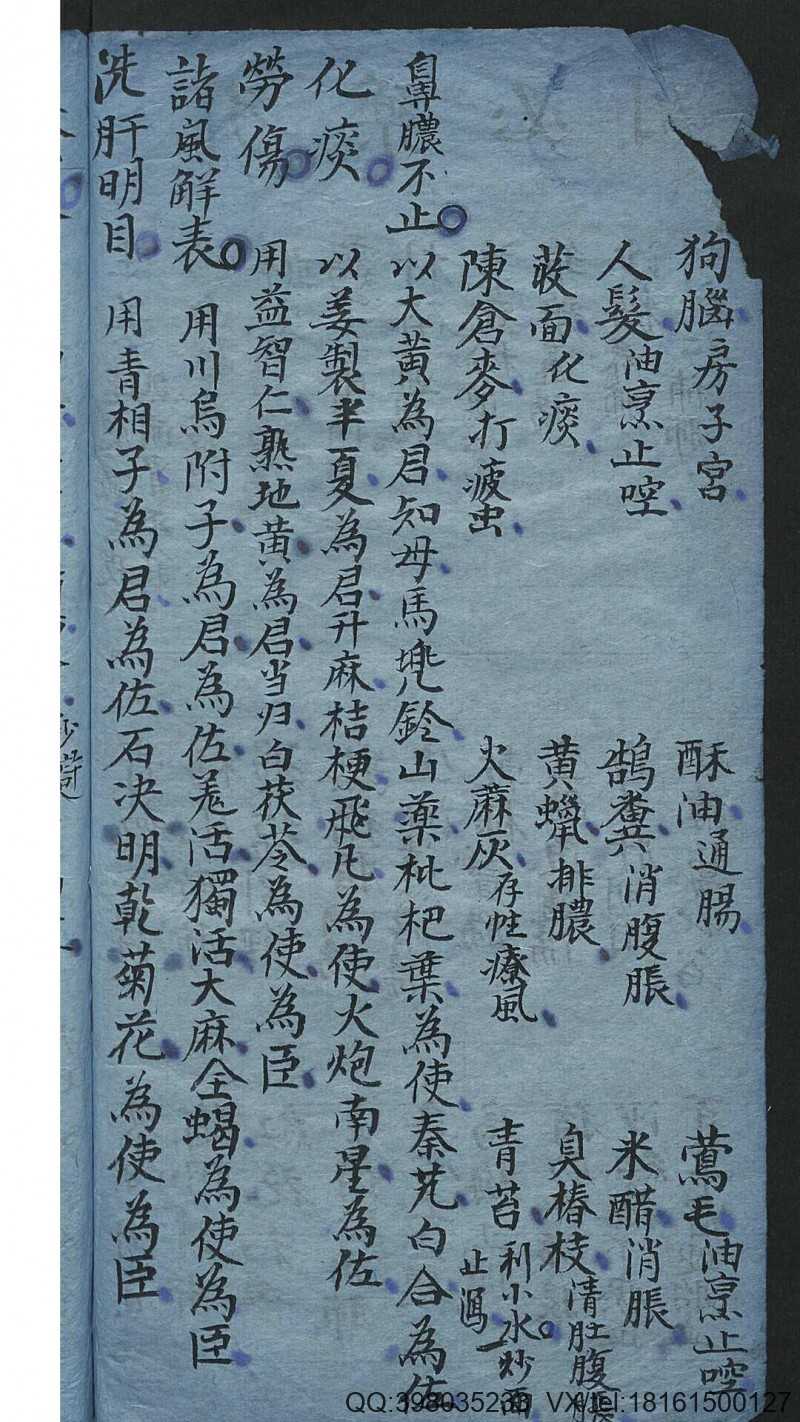 狗腦房子宮 酥油通腸 鶯毛油烹止啌
人髮油烹止啌 鵠糞消腹脹 米醋消脹
莜面化痰 黄蠟排膿 臭椿枝清肚腹
陳倉麥打疲虫 火蔴灰存性療風 青苔利小水炒 止瀉
鼻膿不止 以大黄為君知母馬兠鈴山藥枇杷葉為使秦艽白合為佐
化痰 以姜製半夏為君升麻桔梗飛凡為使火炮南星為佐
勞傷 用益智仁熟地黄為君当归白茯苓為使為臣
諸風解表 用川烏附子為君為佐羗活獨活大麻全蝎為使為臣
洗肝明目 用青相子為君為佐石决明乾菊花為使為臣
QQ:398035233 VX/tel:18161500127